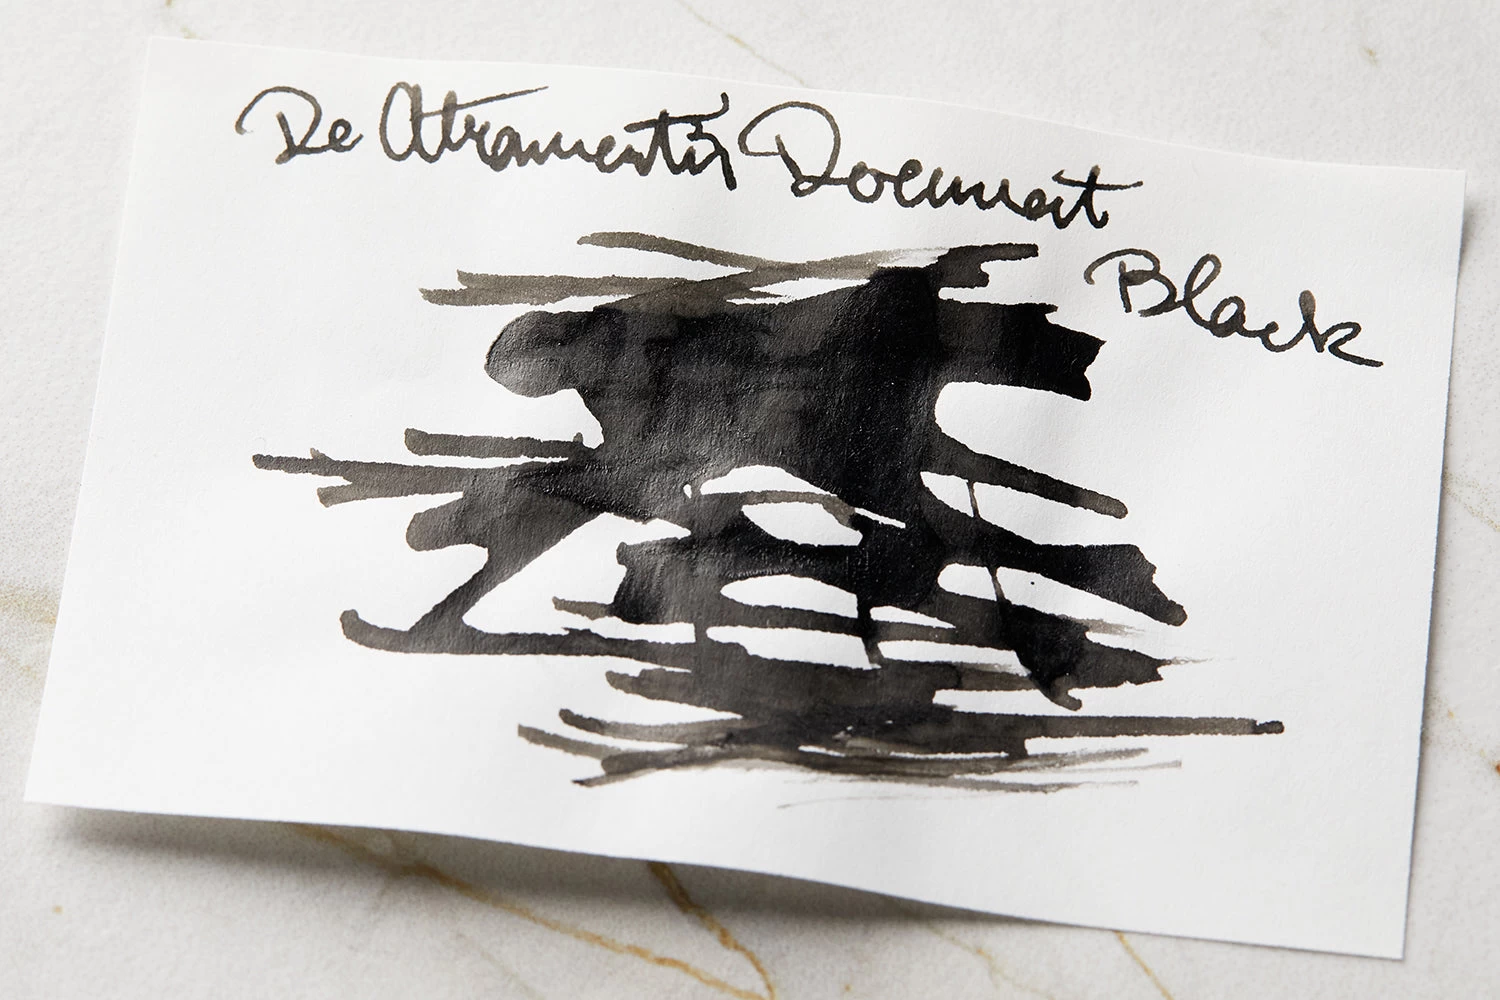 De Atramentis Document
Black